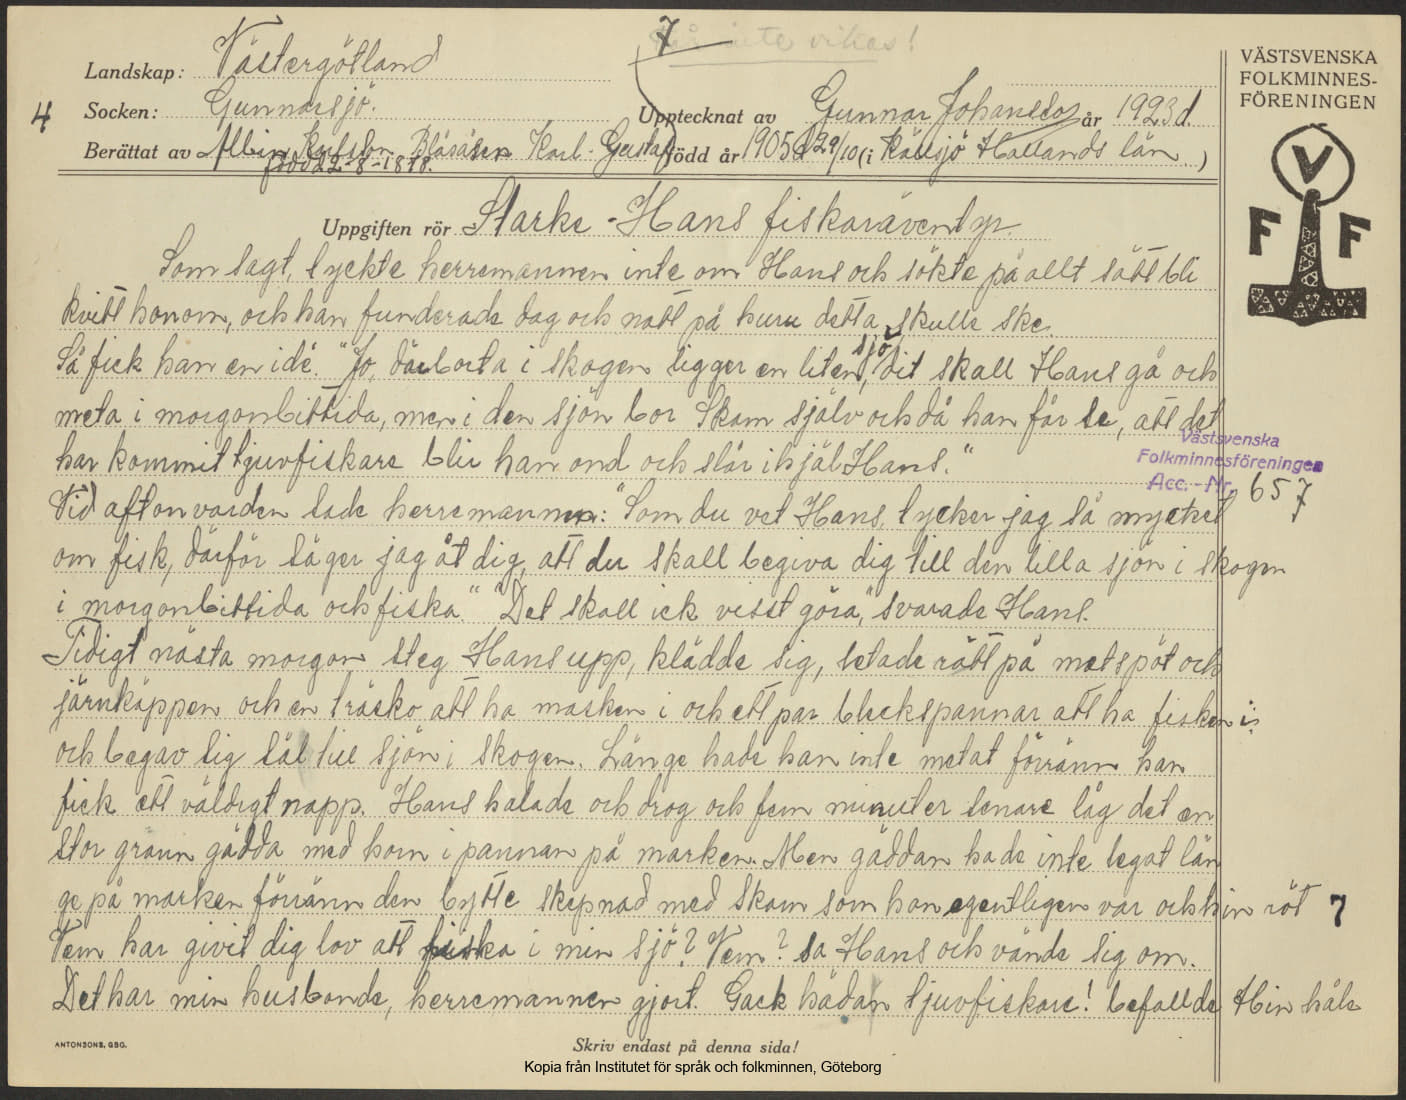 7
inte vikas!
Landskap: Västergötland
Socken: Gunnarsjö.
4
Upptecknat av Gunnar Johansson år 1923
Berättat av Albin Karlsson Blåsåsen Karl-Gustaf född år 1905 29/10 (i Källsjö Hallands län)
född 22-8-1878.
VÄSTSVENSKA
FOLKMINNES-
FÖRENINGEN
V
F F
Uppgiften rör Starke-Hans fiskaräventyr
Som sagt, tyckte herremannen inte om Hans och sökte på allt sätt bli
kvitt honom, och han funderade dag och natt på huru detta skulle ske.
Så fick han en idé. "Jo, därborta i skogen ligger en liten sjö, dit skall Hans gå och
meta i morgonbittida, men i den sjön bor Skam själv och då han får se, att det
har kommit tjuvfiskare blir han ond och slår ihjäl Hans."
Västsvenska
Folkminnesföreningen
Acc.-Nr. 657
Vid aftonvarden sade herremannen: "Som du vet Hans, tycker jag så mycket
om fisk, därför säger jag åt dig, att du skall begiva dig till den lilla sjön i skogen
i morgonbittida och fiska." "Det skall ick visst göra", svarade Hans.
Tidigt nästa morgon steg Hans upp, klädde sig, letade rätt på metspöt och
järnkäppen och en träsko att ha masken i och ett par bleckspannar att ha fisken i,
och begav sig till sjön i skogen. Länge hade han inte metat förränn han
fick ett väldigt napp. Hans halade och drog och fem minuter senare låg det en
stor grann gädda med horn i pannan på marken. Men gäddan hade inte legat län
ge på marken förränn den bytte skepnad med Skam som han egentligen var och hin röt
7
Vem har givit dig lov att fiska i min sjö? Vem? sa Hans och vände sig om.
Det har min husbonde, herremannen gjort. Gack hädan tjuvfiskare! befallde Hin håle
ANTONSONS, GBG.
Skriv endast på denna sida!
Kopia från Institutet för språk och folkminnen, Göteborg